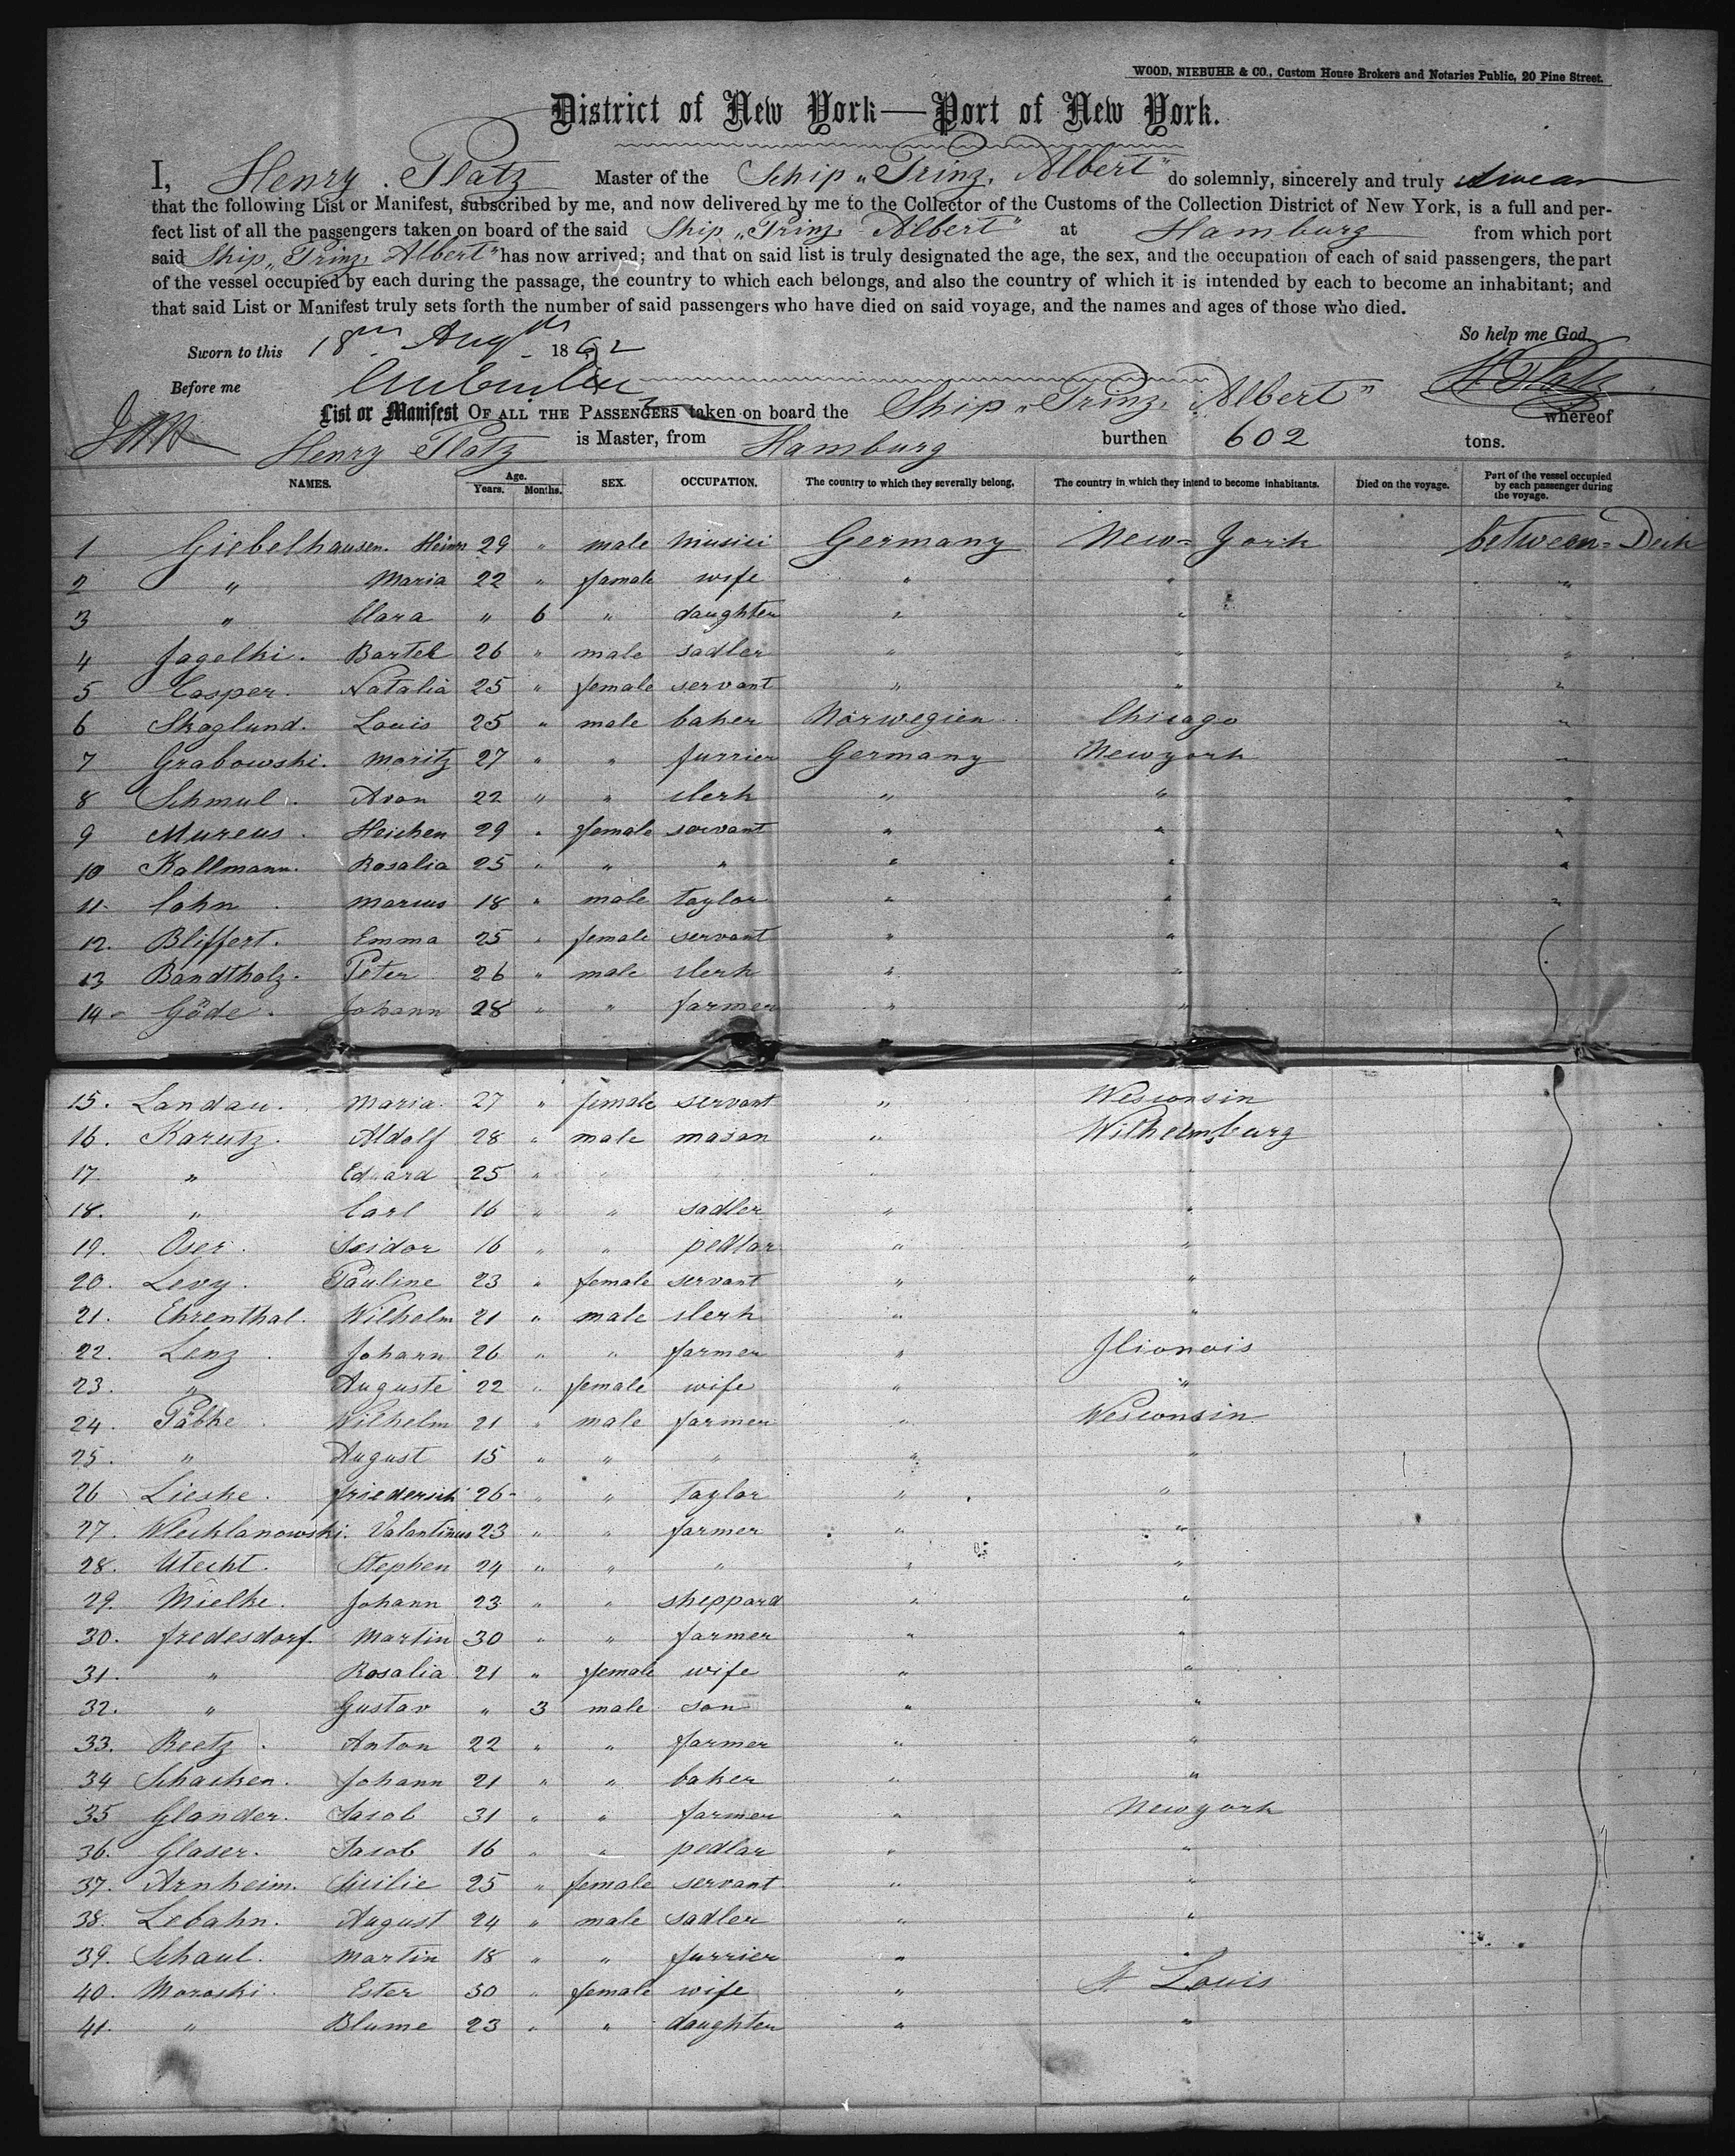 WOOD, NIEBUHR & CO., Custom House Brokers and Notaries Public, 20 Pine Street.
District of New York—Port of New York.
I, Henry Platz Master of the Schip „Prinz Albert" do solemnly, sincerely and truly swear
that the following List or Manifest, subscribed by me, and now delivered by me to the Collector of the Customs of the Collection District of New York, is a full and per-
fect list of all the passengers taken on board of the said Ship „Prinz Albert" at Hamburg from which port
said Ship „Prinz Albert" has now arrived; and that on said list is truly designated the age, the sex, and the occupation of each of said passengers, the part
of the vessel occupied by each during the passage, the country to which each belongs, and also the country of which it is intended by each to become an inhabitant; and
that said List or Manifest truly sets forth the number of said passengers who have died on said voyage, and the names and ages of those who died.
So help me God.
Sworn to this 18th Augt 1862
Before me H. Platz
List or Manifest OF ALL THE PASSENGERS taken on board the Ship „Prinz Albert" whereof
Henry Platz is Master, from Hamburg burthen 602 tons.
NAMES. Age. Years. Months. SEX. OCCUPATION. The country to which they severally belong. The country in which they intend to become inhabitants. Died on the voyage. Part of the vessel occupied by each passenger during the voyage.
1 Giebelhausen. Heinr 29 " male musici Germany New=York between=Deck
2 " Maria 22 " famale wife " " "
3 " Clara " 6 " daughter " " "
4 Jagelki. Bartel 26 " male sadler " " "
5 Casper. Natalia 25 " female servant " " "
6 Skoglund. Louis 25 " male baker Norwegien Chicago "
7 Grabowski. Moritz 27 " " furrier Germany Newyork "
8 Schmul. Aron 22 " " clerk " " "
9 Mureus. Heichen 29 " female servant " " "
10 Kallmann. Rosalia 25 " " " " " "
11. Cohn. Marcus 18 " male taylor " " "
12. Bliffert. Emma 25 " female servant " "
13 Bandtholz. Peter 26 " male clerk " "
14 Göde. Johann 28 " " farmer " "
15. Landau. Maria. 27 " female servant " Wesconsin
16. Karutz. Aldolf 28 " male mason " Wilhelmsburg
17. " Eduard 25 " " " " "
18. " Carl 16 " " sadler " "
19. Oser. Isidor 16 " " pedlar " "
20. Levy. Pauline 23 " female servant " "
21. Ehrenthal. Wilhelm 21 " male clerk " "
22. Lenz. Johann 26 " " farmer " Jlionois
23. " Auguste 22 " female wife " "
24. Päbke. Wilhelm 21 " male farmer " Wesconsin
25. " August 15 " " " " "
26 Lieske. friederich 26 " " Taylor " "
27. Wlecklanowski. Valantinus 23 " " farmer " "
28. Utecht. Stephen 24 " " " " "
29. Mielke. Johann 23 " " sheppard " "
30. fredesdorf. Martin 30 " " farmer " "
31. " Rosalia 21 " female wife " "
32. " Gustav " 3 male son " "
33. Reetz. Anton 22 " " farmer " "
34 Schacken. Johann 21 " " baker " "
35 Glander. Jacob 31 " " farmer " Newyork
36. Glaser. Jacob 16 " " pedlar " "
37. Arnheim. Cicilie 25 " female servant " "
38. Lebahn. August 24 " male sadler " "
39. Schaul. Martin 18 " " furrier " "
40. Moroski. Ester 30 " female wife " St Louis
41. " Blume 23 " " daughter " "